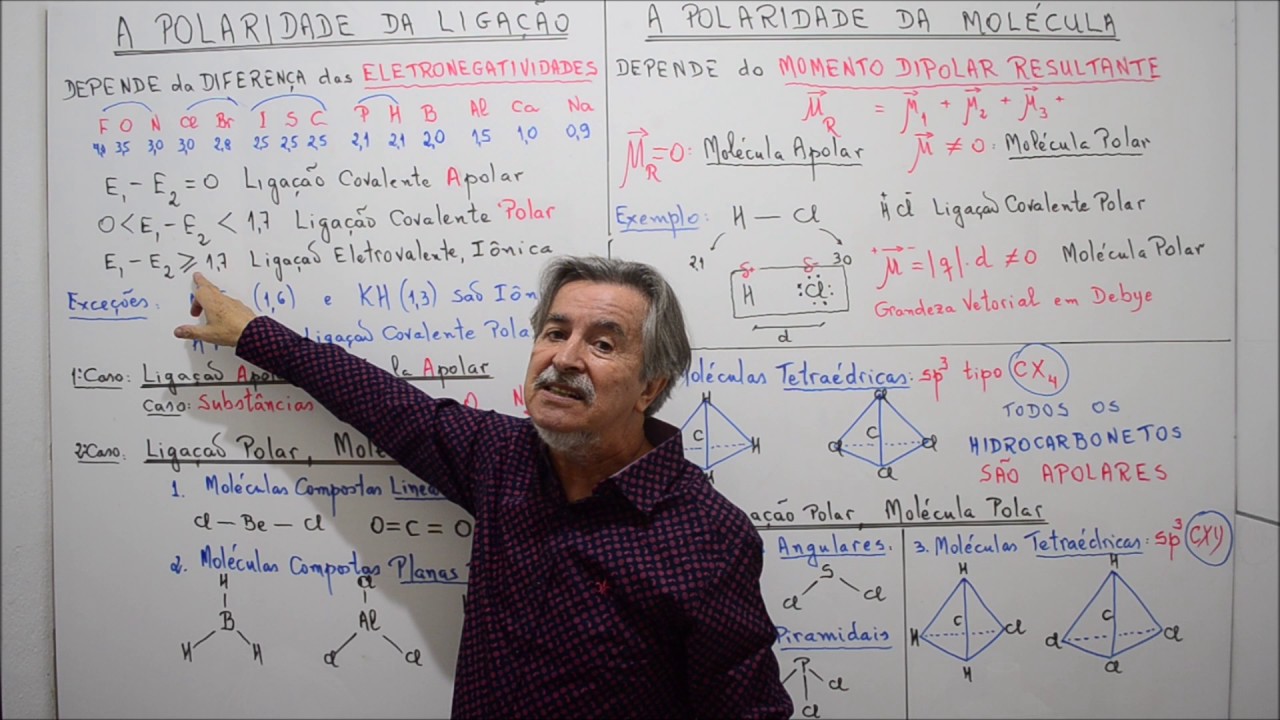 A POLARIDADE DA LIGAÇÃO
DEPENDE da DIFERENÇA das ELETRONEGATIVIDADES
F O N Cl Br I S C P H B Al Ca Na
4,0 3,5 3,0 3,0 2,8 2,5 2,5 2,5 2,1 2,1 2,0 1,5 1,0 0,9
E₁ - E₂ = 0 Ligação Covalente Apolar
0 < E₁ - E₂ < 1,7 Ligação Covalente Polar
E₁ - E₂ ≥ 1,7 Ligação Eletrovalente, Iônica
Exceções: (1,6) e KH (1,3) são
Ligação Covalente
1º Caso: Ligação Apolar
Caso: Substâncias
2º Caso: Ligação Polar,
1. Moléculas Compostas
Cl - Be - Cl O = C = O
2. Moléculas Compostas Planas
H
B
H H
Cl
Al
Cl Cl
A POLARIDADE DA MOLÉCULA
DEPENDE do MOMENTO DIPOLAR RESULTANTE
μ⃗R = μ⃗₁ + μ⃗₂ + μ⃗₃ +
μ⃗R = 0: Molécula Apolar μ⃗ ≠ 0: Molécula Polar
Exemplo: H — Cl H Cl Ligação Covalente Polar
2,1 3,0
δ+ δ-
H Cl
d
μ⃗ = |q|. d ≠ 0 Molécula Polar
Grandeza Vetorial em Debye
Moléculas Tetraédricas: sp³ tipo CX₄
H
C
H
H
Cl
C
Cl Cl
Cl
TODOS OS
HIDROCARBONETOS
SÃO APOLARES
Polar, Molécula Polar
Angulares.
S
Cl Cl
Piramidais
P
Cl
Cl
3. Moléculas Tetraédricas: sp³ CXY
H
C
H Cl
H
H
C
Cl Cl
Cl